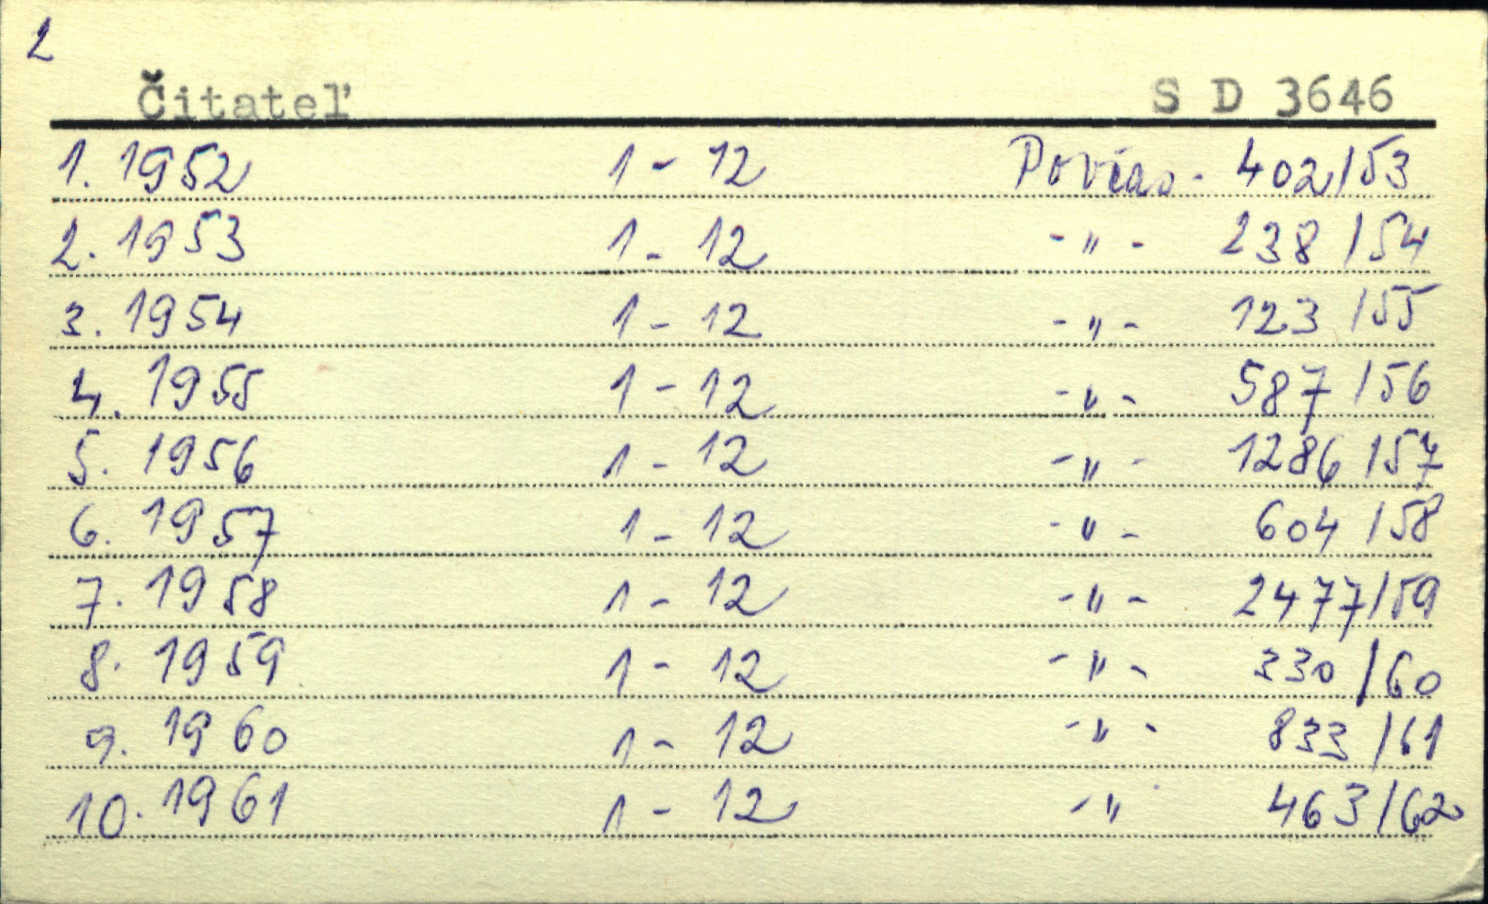 2
Čitateľ S D 3646
1. 1952 1 - 12 Povčas - 402/53
2. 1953 1 - 12 - " - 238/54
3. 1954 1 - 12 - " - 123/55
4. 1955 1 - 12 - " - 587/56
5. 1956 1 - 12 - " - 1286/57
6. 1957 1 - 12 - " - 604/58
7. 1958 1 - 12 - " - 2477/59
8. 1959 1 - 12 - " - 330/60
9. 1960 1 - 12 - " - 833/61
10. 1961 1 - 12 - " 463/62